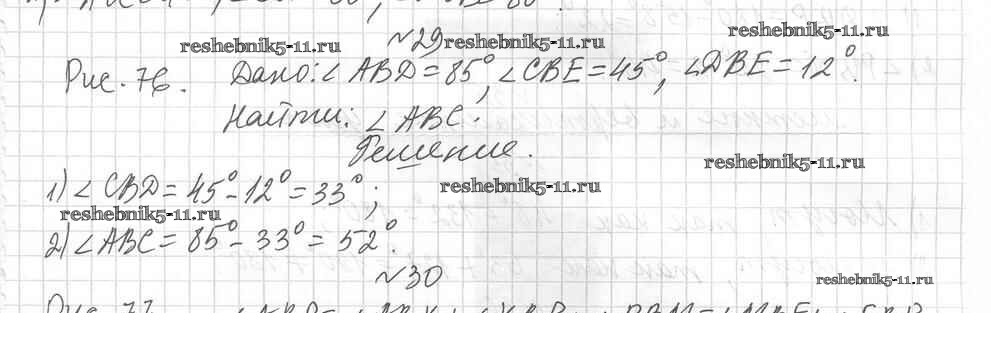 reshebnik5-11.ru №29 reshebnik5-11.ru reshebnik5-11.ru
Рис. 76. Дано: ∠ABD = 85°, ∠CBE = 45°, ∠DBE = 12°.
Найти: ∠ABC.
Решение.
reshebnik5-11.ru
1) ∠CBD = 45° - 12° = 33°;
reshebnik5-11.ru
reshebnik5-11.ru
2) ∠ABC = 85° - 33° = 52°.
№30
reshebnik5-11.ru
Рис. 77